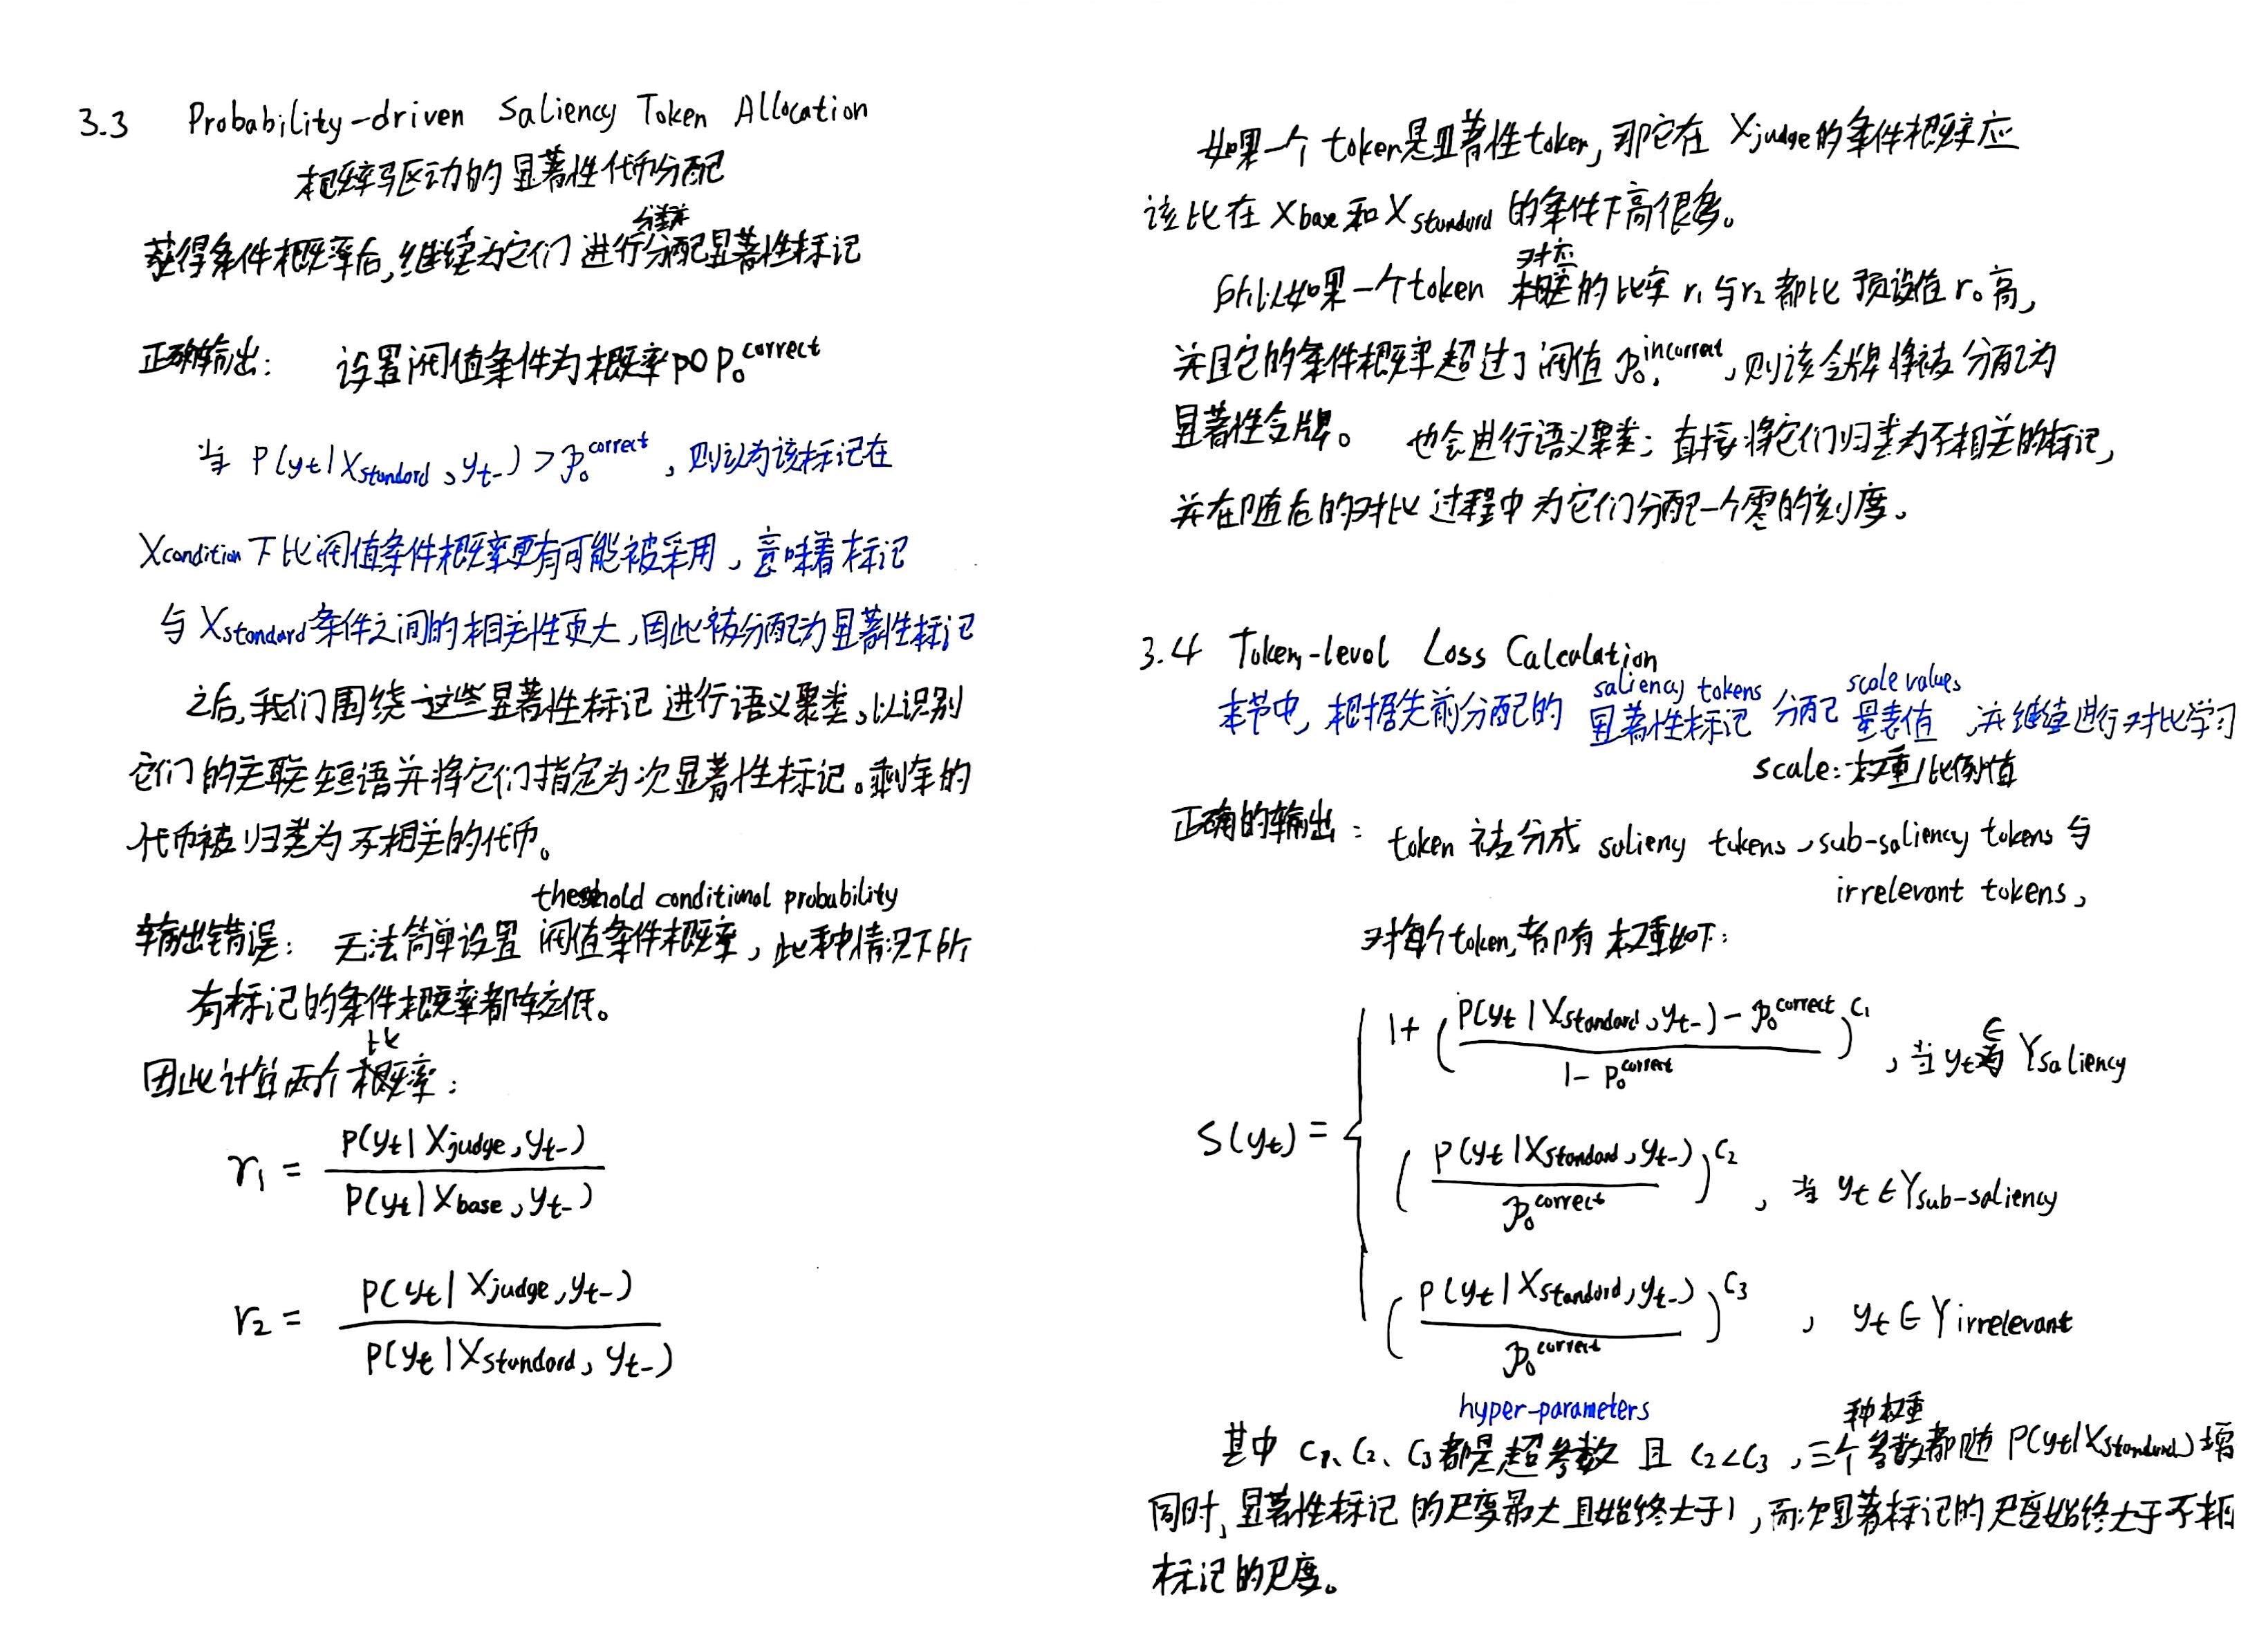 3.3 Probability-driven Saliency Token Allocation
概率驱动的显著性代币分配
获得条件概率后,继续为它们进行分配显著性标记
正确输出: 设置阈值条件为概率p0 p₀^correct
当 P(yt|Xstandard、yt-) > p₀^correct , 则认为该标记在
Xcondition下比阈值条件概率更有可能被采用,意味着标记
与Xstandard条件之间的相关性更大,因此被分配为显著性标记
之后,我们围绕这些显著性标记进行语义聚类。以识别
它们的关联短语并将它们指定为次显著性标记。剩余的
代币被归类为不相关的代币。
threshold conditional probability
输出错误: 无法简单设置阈值条件概率,此种情况下所
有标记的条件概率都较低。
比
因此计算两个概率:
r₁ = P(yt|Xjudge,yt-) / P(yt|Xbase,yt-)
r₂ = P(yt|Xjudge,yt-) / P(yt|Xstandard, yt-)
如果一个token是显著性token,那它在Xjudge的条件概率应
该比在Xbase和Xstandard的条件下高很多。
对应
所以如果一个token 的比率r₁与r₂都比预设值r₀高,
并且它的条件概率超过了阈值p₀^incorrect,则该令牌将被分配为
显著性令牌。 也会进行语义聚类;直接将它们归类为不相关的标记,
并在随后的对比过程中为它们分配一个零的刻度。
3.4 Token-level Loss Calculation
saliency tokens scale values
本节中,根据先前分配的显著性标记分配量表值,并继续进行对比学习
scale:权重/比例值
正确的输出: token被分成 saliency tokens、sub-saliency tokens与
irrelevant tokens,
对每个token,都有权重如下:
S(yt) = { 1+((P(yt|Xstandard,yt-) - p₀^correct) / (1 - p₀^correct))^C₁ ,当yt∈Ysaliency
(P(yt|Xstandard,yt-) / p₀^correct)^C₂ ,当yt∈Ysub-saliency
(P(yt|Xstandard,yt-) / p₀^correct)^C₃ , yt∈Yirrelevant
hyper-parameters 种权重
其中C₁、C₂、C₃都是超参数 且C₂<C₃,三个参数都随P(yt|Xstandard)增
同时,显著性标记的尺度最大且始终大于1,而次显著标记的尺度始终大于不相
标记的尺度。